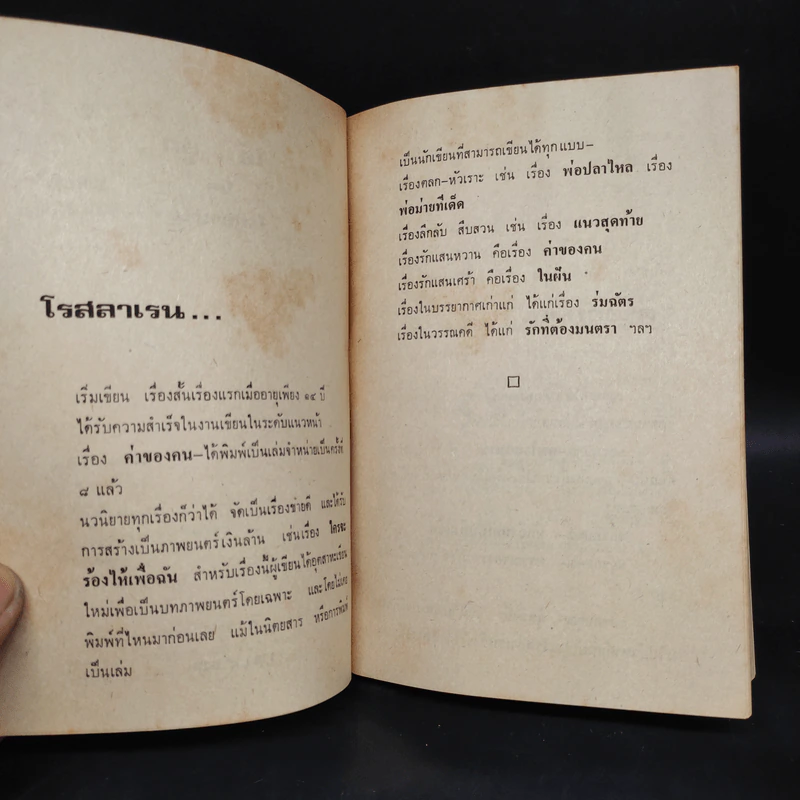 โรสลาเรน...
เริ่มเขียน เรื่องสั้นเรื่องแรกเมื่ออายุเพียง ๑๔ ปี
ได้รับความสำเร็จในงานเขียนในระดับแนวหน้า
เรื่อง ค่าของคน-ได้พิมพ์เป็นเล่มจำหน่ายเป็นครั้งที่
๘ แล้ว
นวนิยายทุกเรื่องก็ว่าได้ จัดเป็นเรื่องขายดี และได้รับ
การสร้างเป็นภาพยนตร์เงินล้าน เช่นเรื่อง ใครจะ
ร้องไห้เพื่อฉัน สำหรับเรื่องนี้ผู้เขียนได้อุตสาหะเขียน
ใหม่เพื่อเป็นบทภาพยนตร์โดยเฉพาะ และโดยไม่เคย
พิมพ์ที่ไหนมาก่อนเลย แม้ในนิตยสาร หรือการพิมพ์
เป็นเล่ม
เป็นนักเขียนที่สามารถเขียนได้ทุกแบบ-
เรื่องตลก-หัวเราะ เช่น เรื่อง พ่อปลาไหล เรื่อง
พ่อม่ายทีเด็ด
เรื่องลึกลับ สืบสวน เช่น เรื่อง แนวสุดท้าย
เรื่องรักแสนหวาน คือเรื่อง ค่าของคน
เรื่องรักแสนเศร้า คือเรื่อง ในฝัน
เรื่องในบรรยากาศเก่าแก่ ได้แก่เรื่อง ร่มฉัตร
เรื่องในวรรณคดี ได้แก่ รักที่ต้องมนตรา ฯลฯ